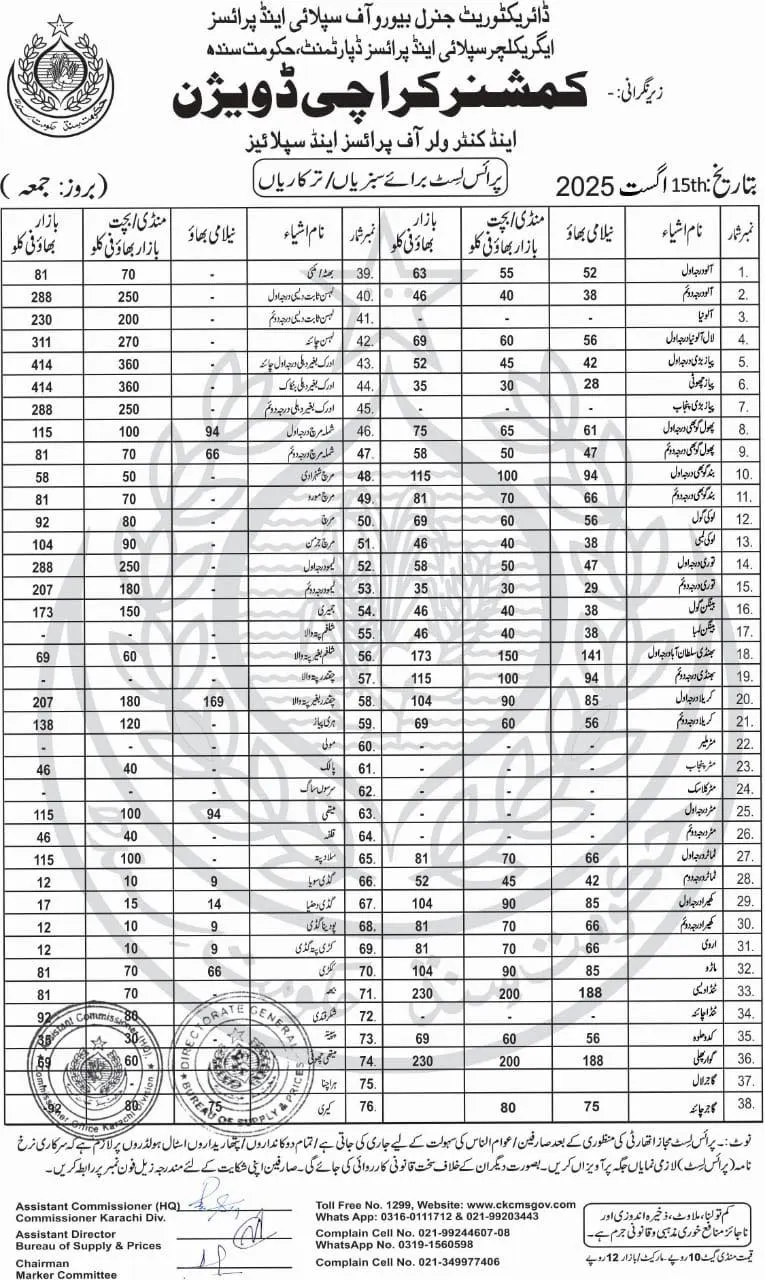 ڈائریکٹوریٹ جنرل بیورو آف سپلائی اینڈ پرائسز
ایگریکلچر سپلائی اینڈ پرائسز ڈپارٹمنٹ، حکومت سندھ
زیرنگرانی: - کمشنر کراچی ڈویژن
اینڈ کنٹرولر آف پرائسز اینڈ سپلائیز
بتاریخ: 15th اگست 2025 پرائس لسٹ برائے سبزیاں/ترکاریاں (بروز: جمعہ)
نمبر شمار نام اشیاء نیلامی بھاؤ منڈی/بچت بازار بھاؤ فی کلو بازار بھاؤ فی کلو نمبر شمار نام اشیاء نیلامی بھاؤ منڈی/بچت بازار بھاؤ فی کلو بازار بھاؤ فی کلو
1. آلو درجہ اول 52 55 63 39. بھٹہ/مکئی - 70 81
2. آلو درجہ دوئم 38 40 46 40. لہسن ثابت دیسی درجہ اول - 250 288
3. آلو نیا - - - 41. لہسن ثابت دیسی درجہ دوئم - 200 230
4. لال آلو نیا درجہ اول 56 60 69 42. لہسن چائنہ - 270 311
5. پیاز بڑی درجہ اول 42 45 52 43. ادرک بغیر دھلی درجہ اول چائنہ - 360 414
6. پیاز چھوٹی 28 30 35 44. ادرک بغیر دھلی بنکاک - 360 414
7. پیاز بڑی پنجاب - - - 45. ادرک بغیر دھلی درجہ دوئم - 250 288
8. پھول گوبھی درجہ اول 61 65 75 46. شملہ مرچ درجہ اول 94 100 115
9. پھول گوبھی درجہ دوئم 47 50 58 47. شملہ مرچ درجہ دوئم 66 70 81
10. بند گوبھی درجہ اول 94 100 115 48. مرچ شہزادی - 50 58
11. بند گوبھی درجہ دوئم 66 70 81 49. مرچ مورو - 70 81
12. لوکی گول 56 60 69 50. مرچ - 80 92
13. لوکی لمبی 38 40 46 51. مرچ جرمن - 90 104
14. توری درجہ اول 47 50 58 52. لیمو درجہ اول - 250 288
15. توری درجہ دوئم 29 30 35 53. لیمو درجہ دوئم - 180 207
16. بینگن گول 38 40 46 54. جمیری - 150 173
17. بینگن لمبا 38 40 46 55. شلغم پتہ والا - - -
18. بھنڈی سلطان آباد درجہ اول 141 150 173 56. شلغم بغیر پتہ والا - 60 69
19. بھنڈی درجہ دوئم 94 100 115 57. چقندر پتہ والا - - -
20. کریلا درجہ اول 85 90 104 58. چقندر بغیر پتہ والا 169 180 207
21. کریلا درجہ دوئم 56 60 69 59. ہری پیاز - 120 138
22. مٹر ملیر - - - 60. مولی - - -
23. مٹر پنجاب - - - 61. پالک - 40 46
24. مٹر کلاسک - - - 62. سرسوں ساگ - - -
25. مٹر درجہ اول - - - 63. میتھی 94 100 115
26. مٹر درجہ دوئم - - - 64. قلفہ - 40 46
27. ٹماٹر درجہ اول 66 70 81 65. سلاد پتہ - 100 115
28. ٹماٹر درجہ دوم 42 45 52 66. گڈی سویا 9 10 12
29. کھیرا درجہ اول 85 90 104 67. گڈی دھنیا 14 15 17
30. کھیرا درجہ دوئم 66 70 81 68. پودینا گڈی 9 10 12
31. اروی 66 70 81 69. کڑی پتہ گڈی 9 10 12
32. ماڑو 85 90 104 70. ککڑی 66 70 81
33. ٹنڈا دیسی 188 200 230 71. - 70 81
34. ٹنڈا چائنہ - - - 72. شکر قندی - 80 92
35. کدو حلوہ 56 60 69 73. پیٹھہ 30
36. گوار پھلی 188 200 230 74. میتھی چھوٹی 60 69
37. گاجر لال - - - 75. ہرا چنا
38. گاجر چائنہ 75 80 76. کیری 75 80 92
نوٹ :۔ پرائس لسٹ مجاز اتھارٹی کی منظوری کے بعد صارفین/عوام الناس کی سہولت کے لیے جاری کی جاتی ہے/تمام دوکانداروں/پتھاریداروں اسٹال ہولڈروں پر لازم ہے کہ سرکاری نرخ
نامہ (پرائس لسٹ) لازمی نمایاں جگہ پر آویزاں کریں۔ بصورت دیگر ان کے خلاف سخت قانونی کارروائی کی جائے گی۔ صارفین اپنی شکایت کے لئے مندرجہ زیل فون نمبر پر رابطہ کریں۔
Assistant Commissioner (HQ)
Commissioner Karachi Div.
Assistant Director
Bureau of Supply & Prices
Chairman
Marker Committee
Toll Free No. 1299, Website: www.ckcmsgov.com
Whats App: 0316-0111712 & 021-99203443
Complain Cell No. 021-99244607-08
WhatsApp No. 0319-1560598
Complain Cell No. 021-349977406
کم تولنا، ملاوٹ، ذخیرہ اندوزی اور
ناجائز منافع خوری مذہبی و قانونی جرم ہے۔
قیمت منڈی گیٹ 10 روپے۔ مارکیٹ/بازار 12 روپے
Assistant Commissioner (HQ).
Commissioner Office Karachi Division
DIRECTORATE GENERAL
BUREAU OF SUPPLY & PRICES